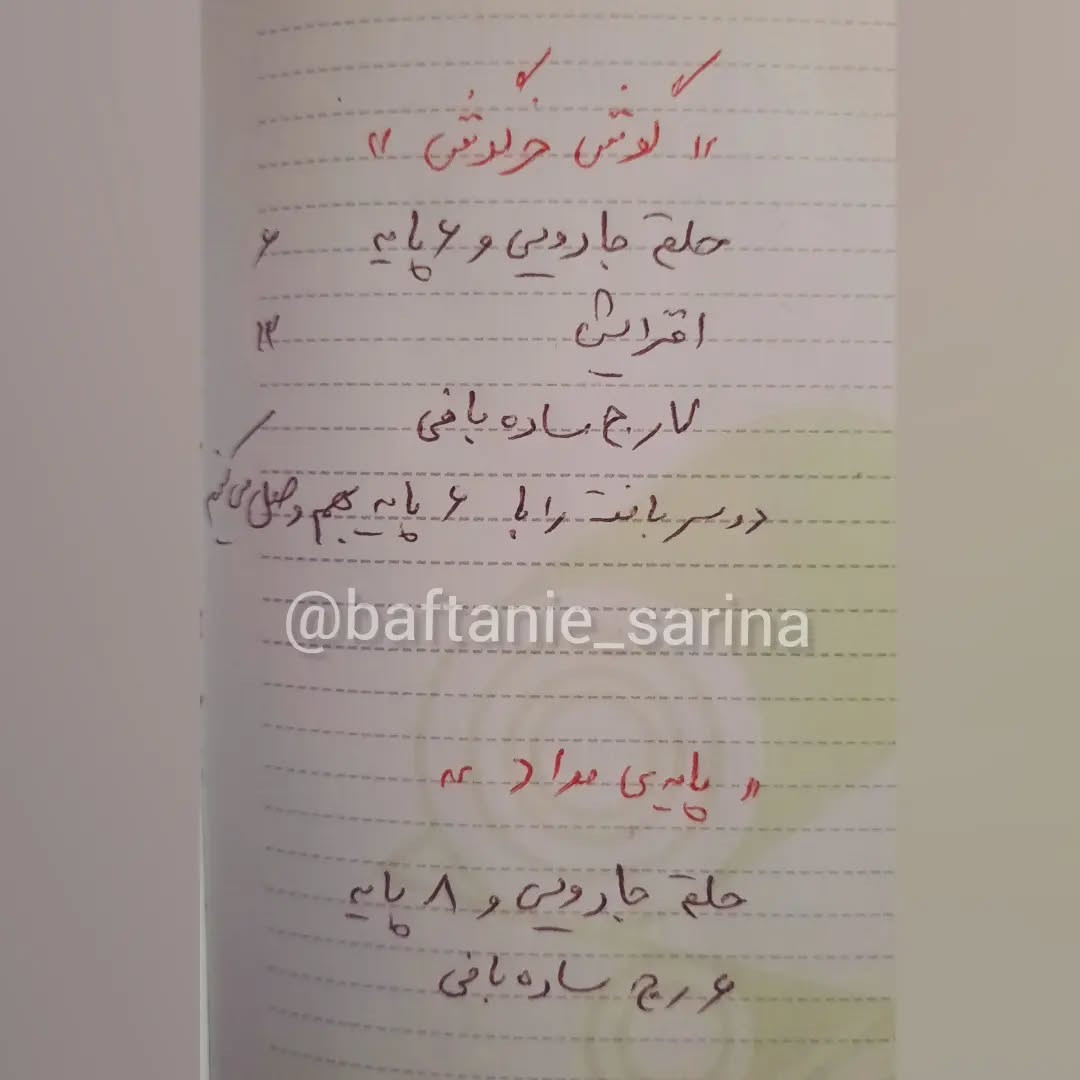 "گوش خرگوش"
حلقه جادویی و ۶ پایه ۶
افزایش ۱۲
۷ رج ساده بافی
دو سر بافت را با ۶ پایه بهم وصل می کنیم
@baftanie_sarina
"پایه ی مداد"
حلقه جادویی و ۸ پایه
۶ رج ساده بافی